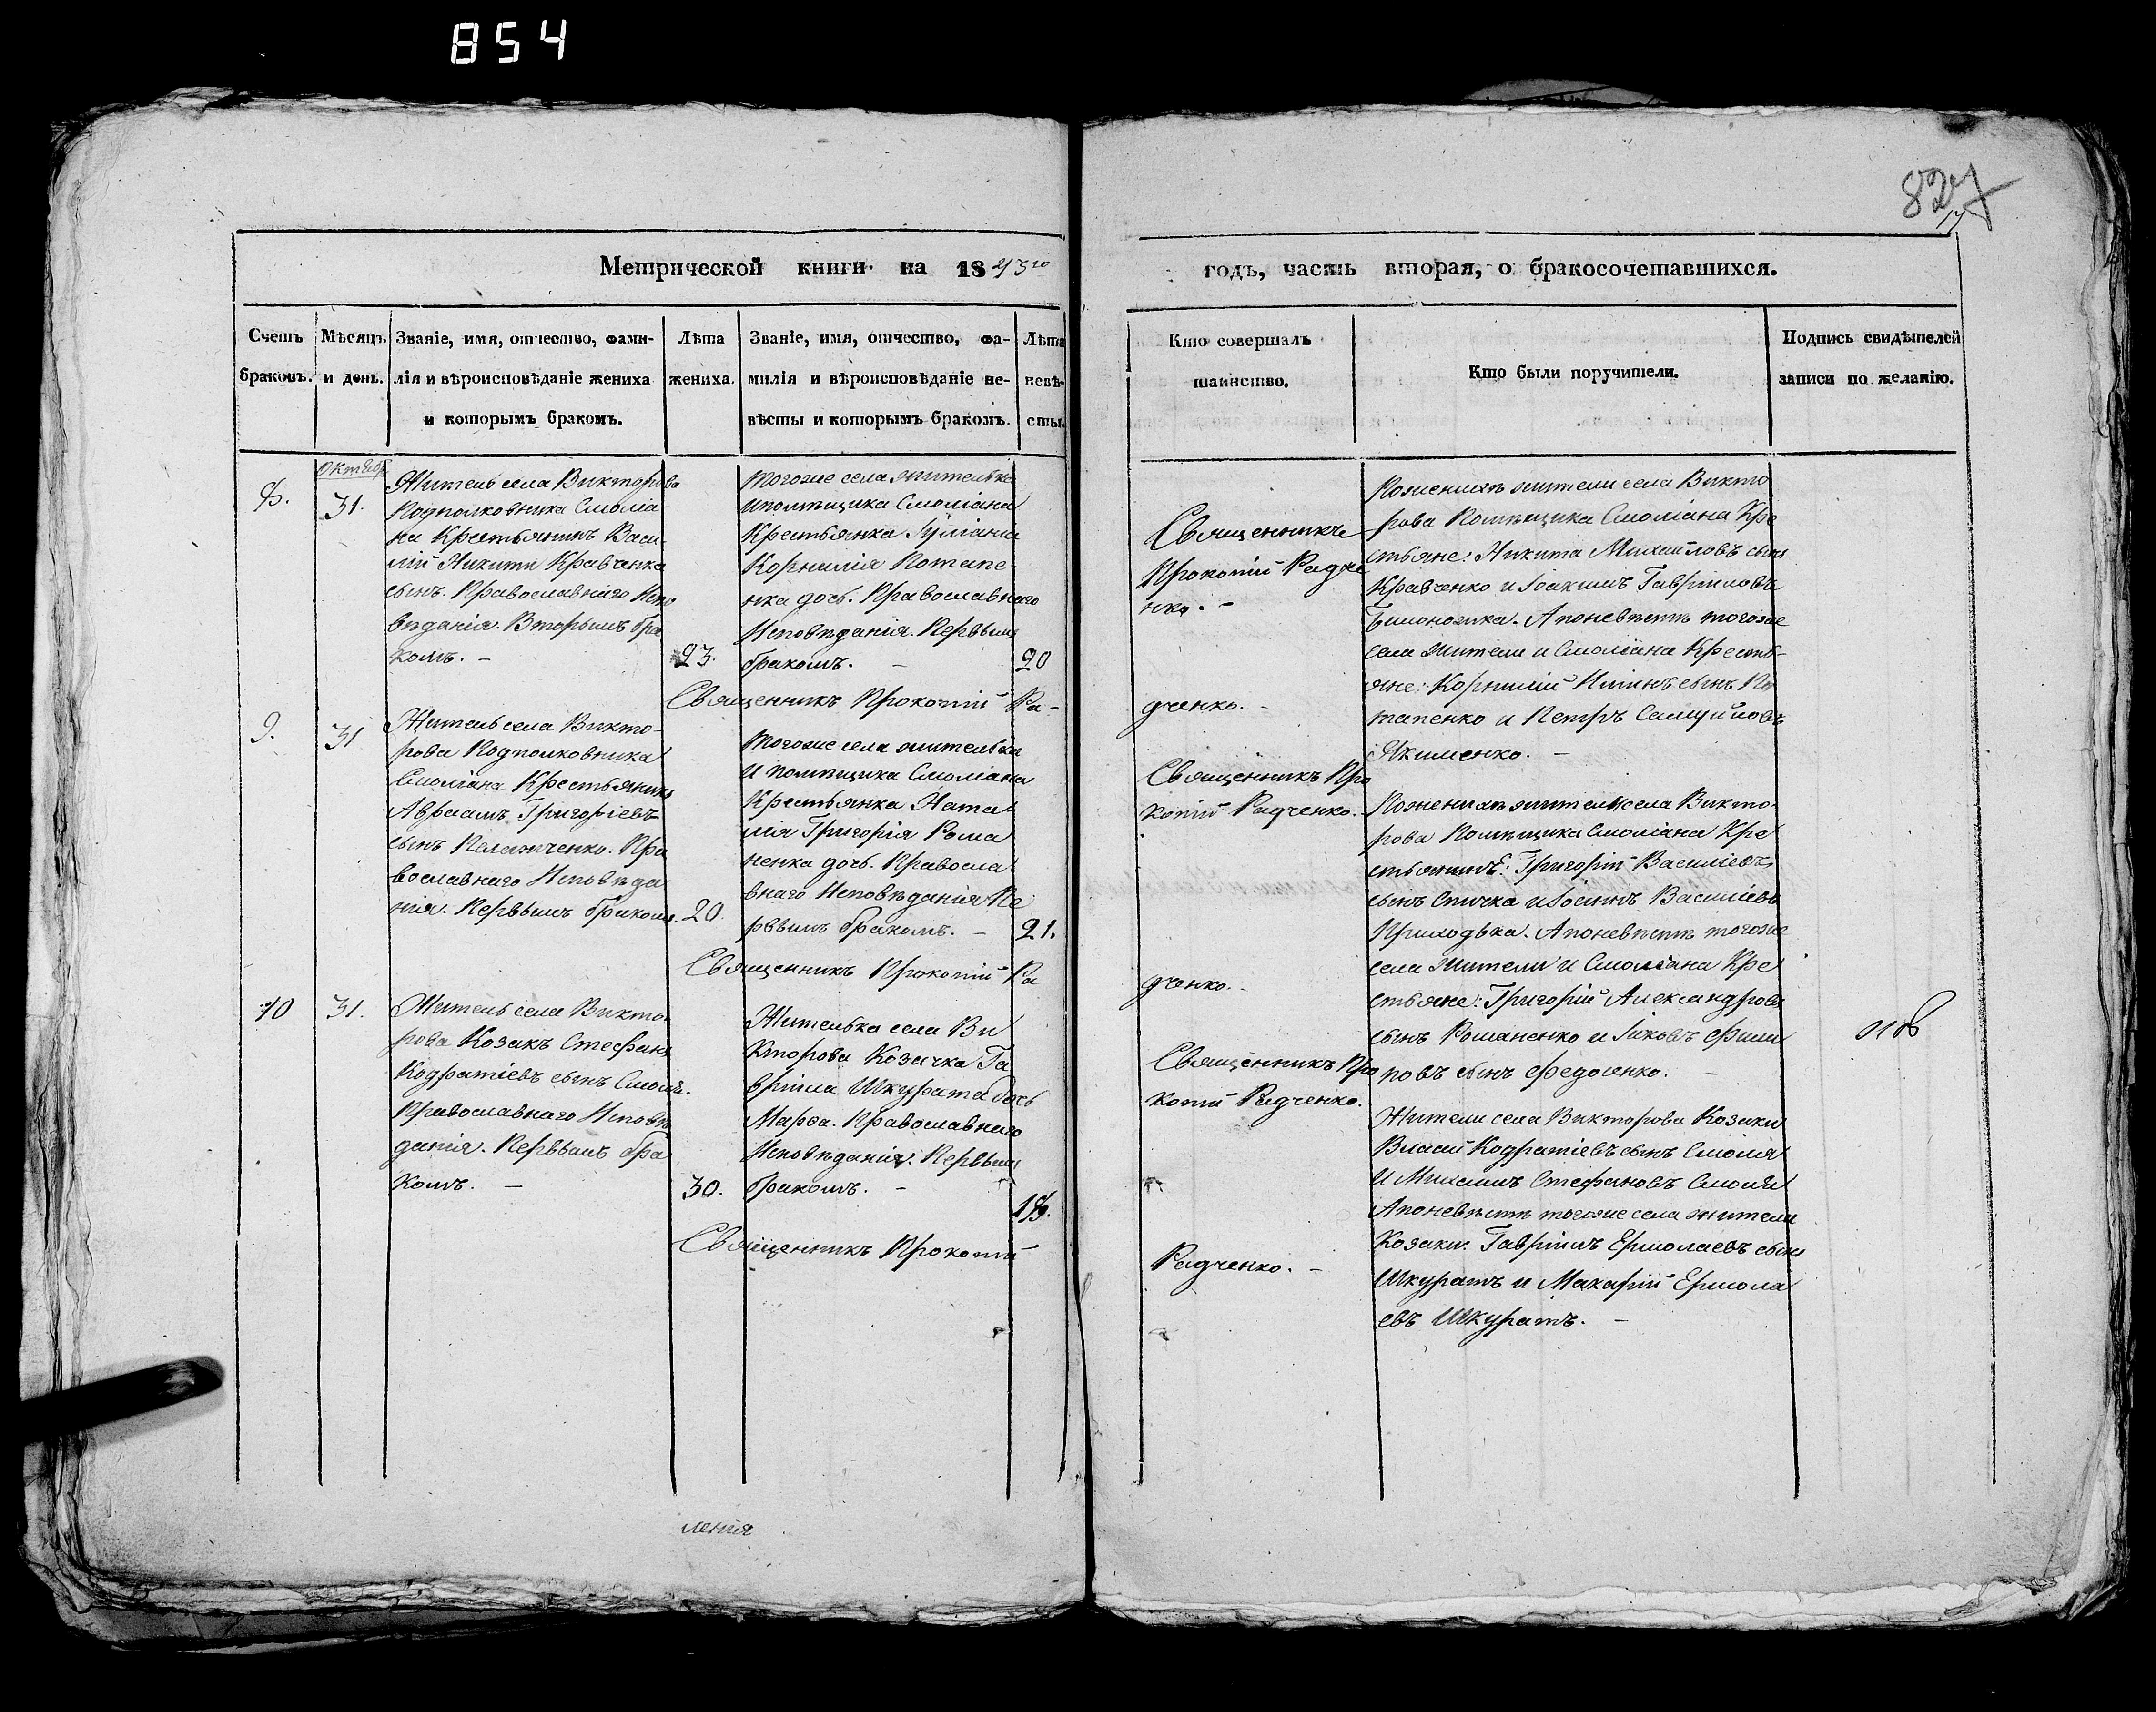 854
827
17
Метрической книги на 1843го
годъ, часть вторая, о бракосочетавшихся.
Счетъ
браковъ.
Мѣсяцъ
и день.
Званіе, имя, отчество, фами-
лія и вѣроисповѣданіе жениха
и которымъ бракомъ.
Лѣта
жениха.
Званіе, имя, отчество, фа-
милія и вѣроисповѣданіе не-
вѣсты и которымъ бракомъ.
Лѣта
невѣ-
сты.
Кто совершалъ
таинство.
Кто были поручители.
Подпись свидѣтелей
записи по желанію.
Октябр
8.
31.
Житель села Викторова
Подполковника Смоліа
на Крестьянинъ Васи
лій Никити Кравченка
сынъ. Православнаго Испо
вѣданія. Вторымъ бра
комъ. –
23.
тогоже села жителька
ипомѣщика Смоліана
Крестьянка Іуліанна
Корнилія Потапе
нка дочь. Православнаго
Исповѣданія. Первымъ
бракомъ. –
20
Священникъ
Прокопій Радче
нко. –
По женихѣ жители села Викто
рова Помѣщика Смоліана Кре
стьяне: Никита Михаиловъ сынъ
Кравченко и Іоакимъ Гавріиловъ
Апоневѣстѣ тогоже
села жители и Смоліана Кресть-
яне: Корнилій Илинъ сынъ По
тапенко и Петръ Самуиловъ
Якименко. –
Священникъ Прокопій Ра-
дченко. –
9.
31
Житель села Викто-
рова Подполковника
Смоліана Крестьянинъ
Авраамъ Григоріевъ
сынъ Пра
вославнаго Исповѣда
нія. Первымъ бракомъ.
20.
тогоже села жителька
и помѣщика Смоліана
Крестьянка Ната
лія Григорія Рома
ненка дочь. Правосла
внаго Исповѣданія Пе
рвымъ бракомъ. –
21.
Священникъ Про
копій Радченко.
По женихѣ жители села Викто-
рова Помѣщика Смоліана Кре
стьянинъ: Григорій Василіевъ
сынъ Спичка и Іоаннъ Василіевъ
Приходька. Апоневѣстѣ тогоже
села жители и Смоліана Кре
стьяне: Григорій Александровъ
сынъ Романенко и Іаковъ Фили
повъ сынъ Федоренко. –
Священникъ Прокопій Ра
дченко. –
10
31.
Житель села Викто-
рова Козакъ Стефанъ
Кодратіевъ сынъ Смоля.
Православнаго Исповѣ
данія. Первымъ бра
комъ. –
30.
Жителька села Ви
кторова Козачка Га
вріила Шкурата дочь
Марѳа. Православнаго
Исповѣданія. Первымъ
бракомъ. –
18.
Священникъ Про
копій Радченко.
Жители села Викторова Козаки
Власій Кодратіевъ сынъ Смоля
и Михаилъ Стефановъ Смоля
Апоневѣстѣ тогоже села жители
Козаки. Гавріилъ Ермолаевъ сынъ
Шкуратъ и Макарій Ермола
евъ Шкуратъ. –
Священникъ Прокопій
Радченко. –
ленія